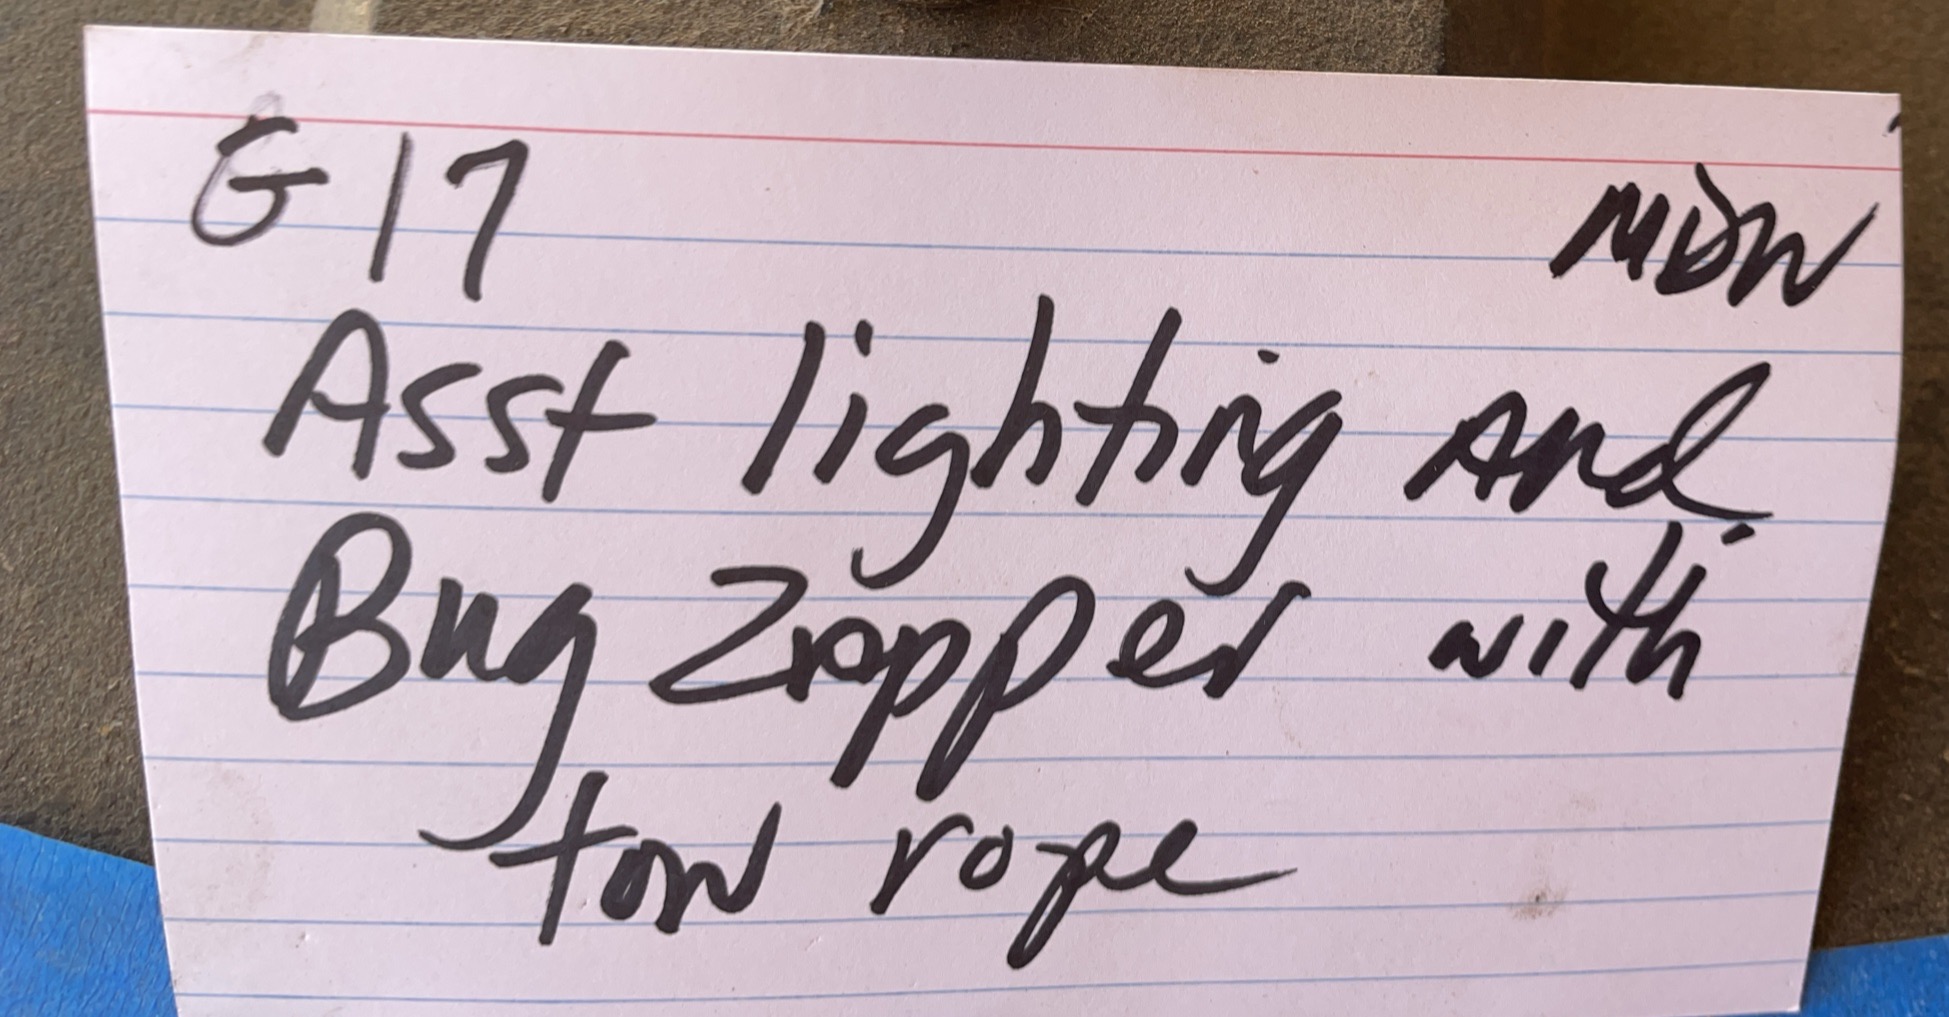 G17 MDW
Asst lighting And
Bug Zapper with
tow rope